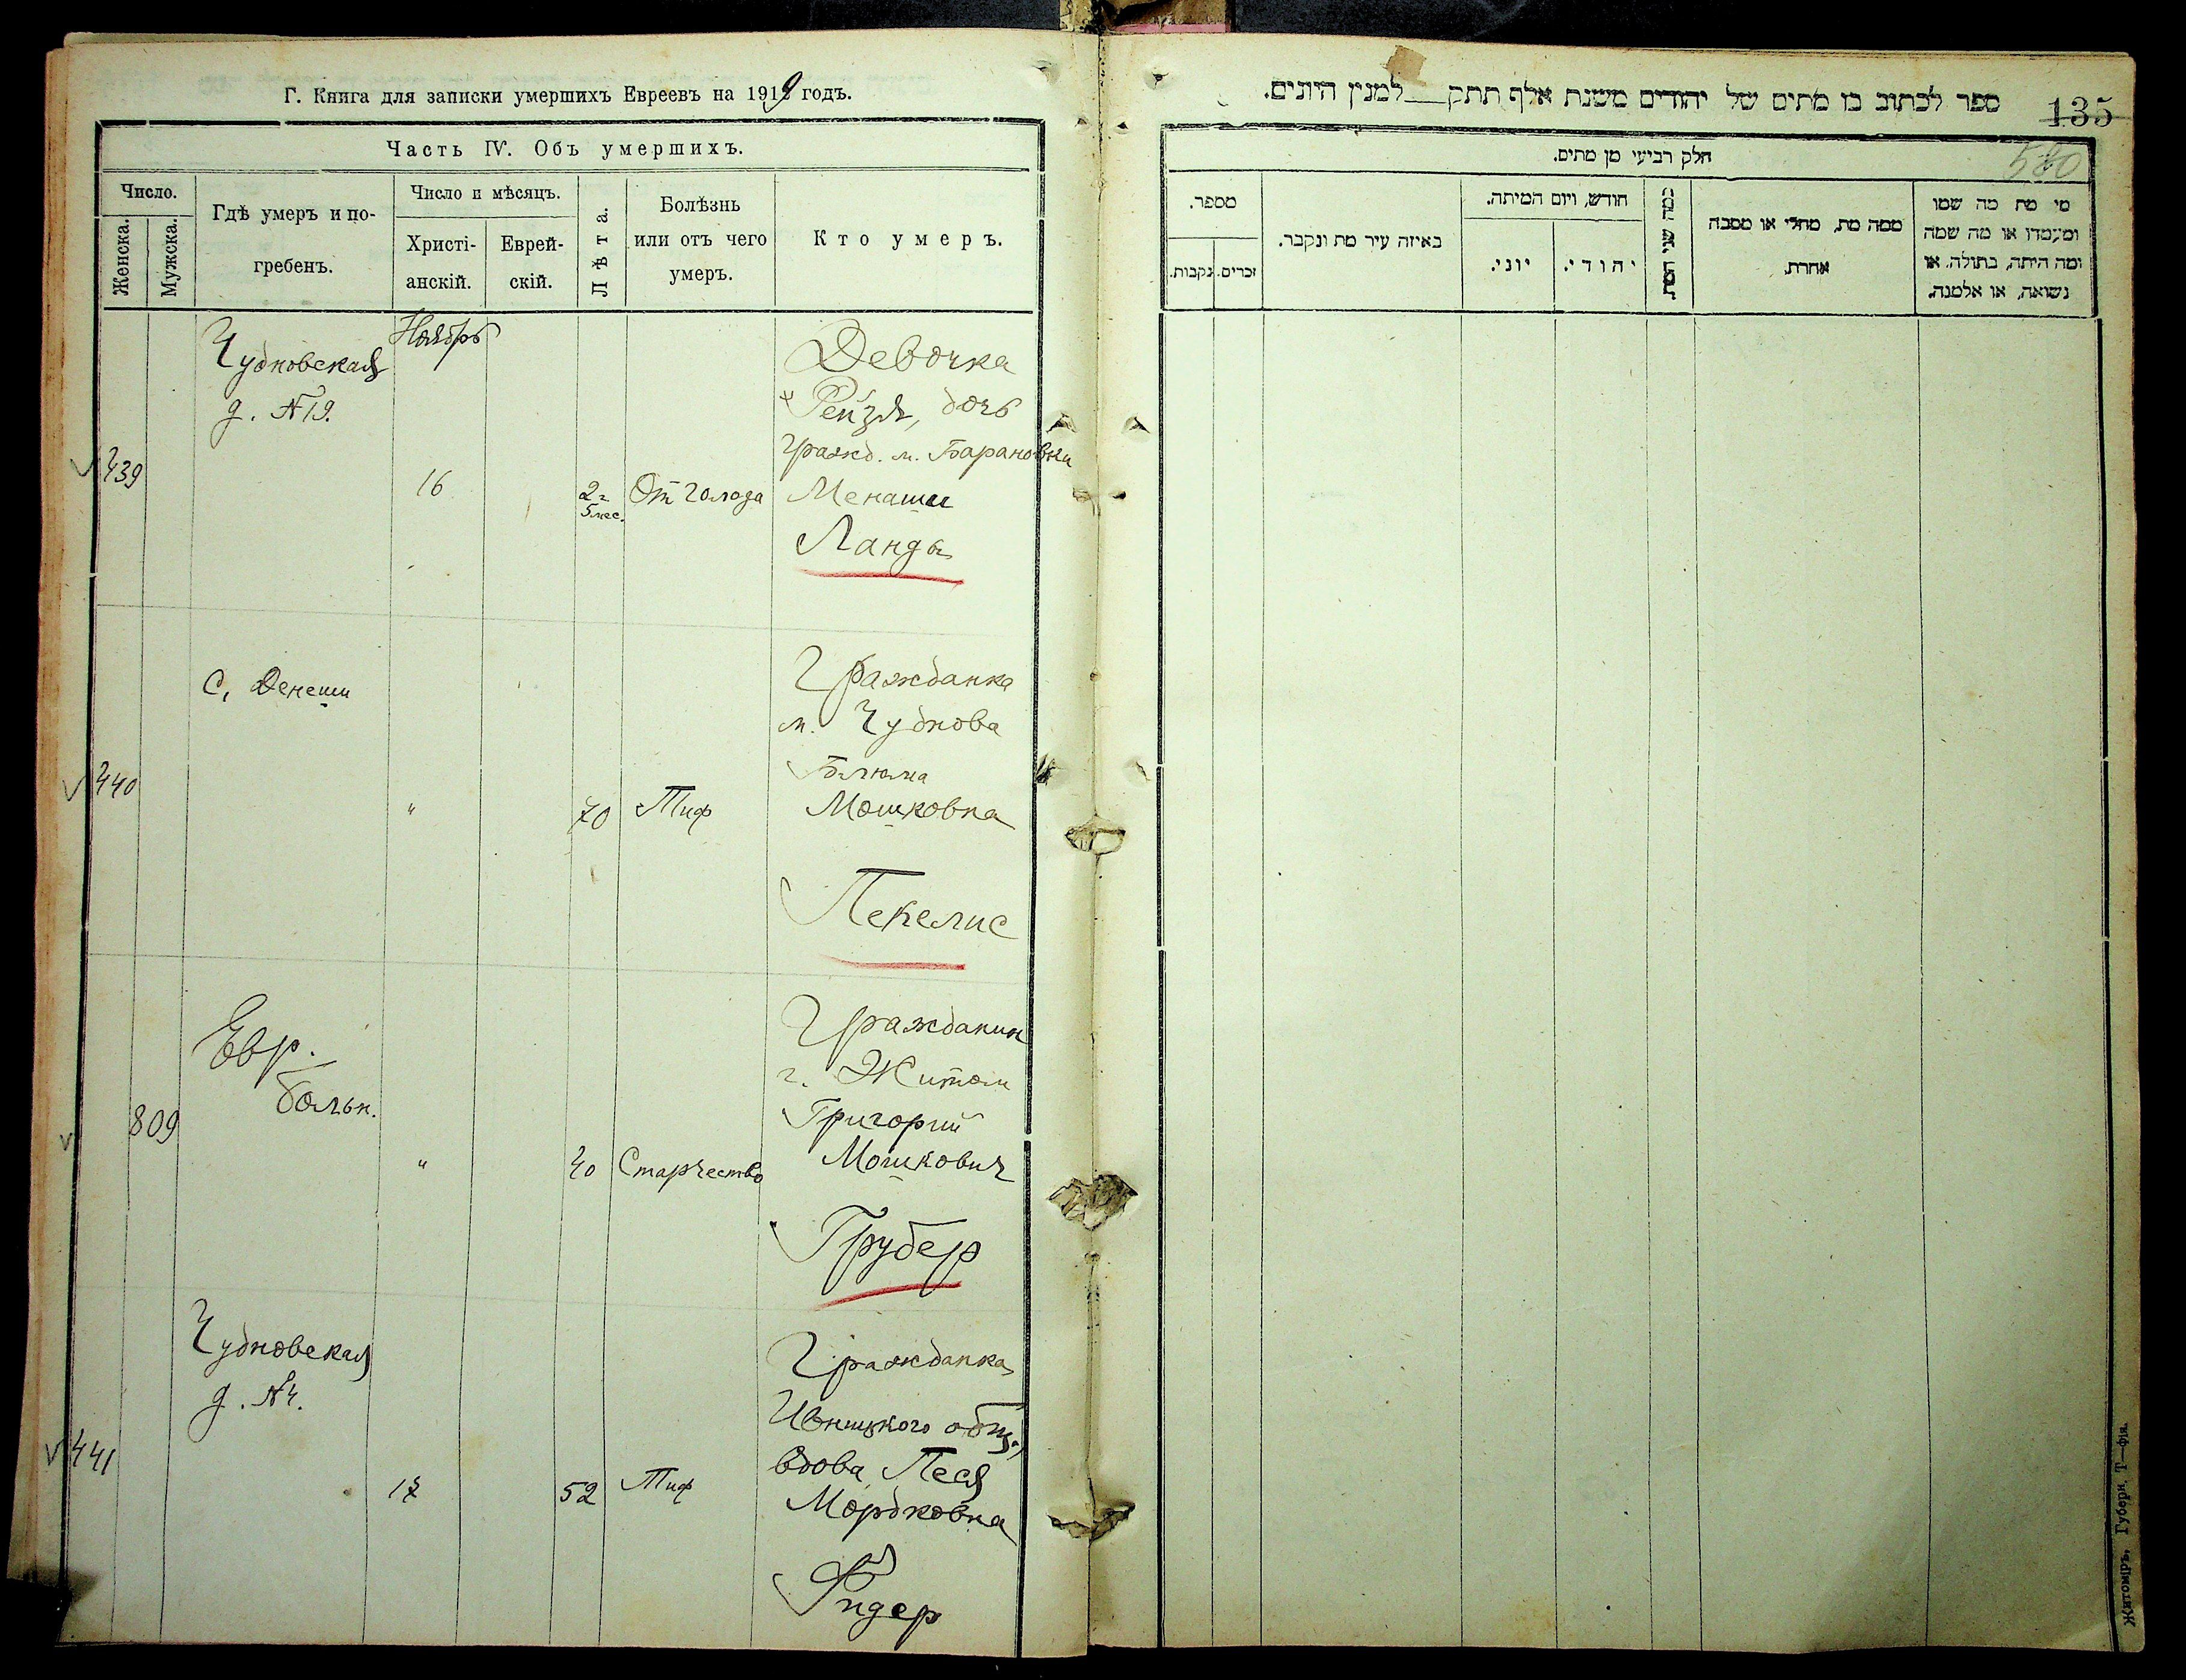 Г. Книга для записки умершихъ Евреевъ на 1919 годъ.
Часть IV. Объ умершихъ.
Число.
Женска.
Мужска.
Гдѣ умеръ и по-
гребенъ.
Число и мѣсяцъ.
Христі-
анскій.
Еврей-
скій.
Лѣта.
Болѣзнь
или отъ чего
умеръ.
Кто умеръ.
439
Чудновская
д. №19.
Ноябрь
16
2 г.
5 мес.
От голода
Девочка
Рейзя, дочь
гражд. м. Барановки
Менаши
Ланда
440
С. Денеши
"
70
Тиф
Гражданка
м. Чуднова
Блюма
Мошковна
Пекелис
809
Евр.
больн.
"
70
Старчество
Гражданин
г. Житом
Григорий
Мошкович
Грубер
441
Чудновская
д. №4.
17
52
Тиф
Гражданка
Ивницкого общ.,
вдова Песя
Мордковна
Фидер
ספר לכתוב בו מתים של יהודים משנת אלף תתק למנין היונים.
135
580
חלק רביעי מן מתים.
מספר.
נקבות.
זכרים.
באיזה עיר מת ונקבר.
חודש, ויום המיתה.
יוני.
יהודי.
כמה שני המת.
ממה מת, מחלי או מסבה
אחרת.
מי מת מה שמו
ומעמדו או מה שמה
ומה היתה, בתולה, או
נשואה, או אלמנה.
Житоміръ, Губерн. Т—фія.